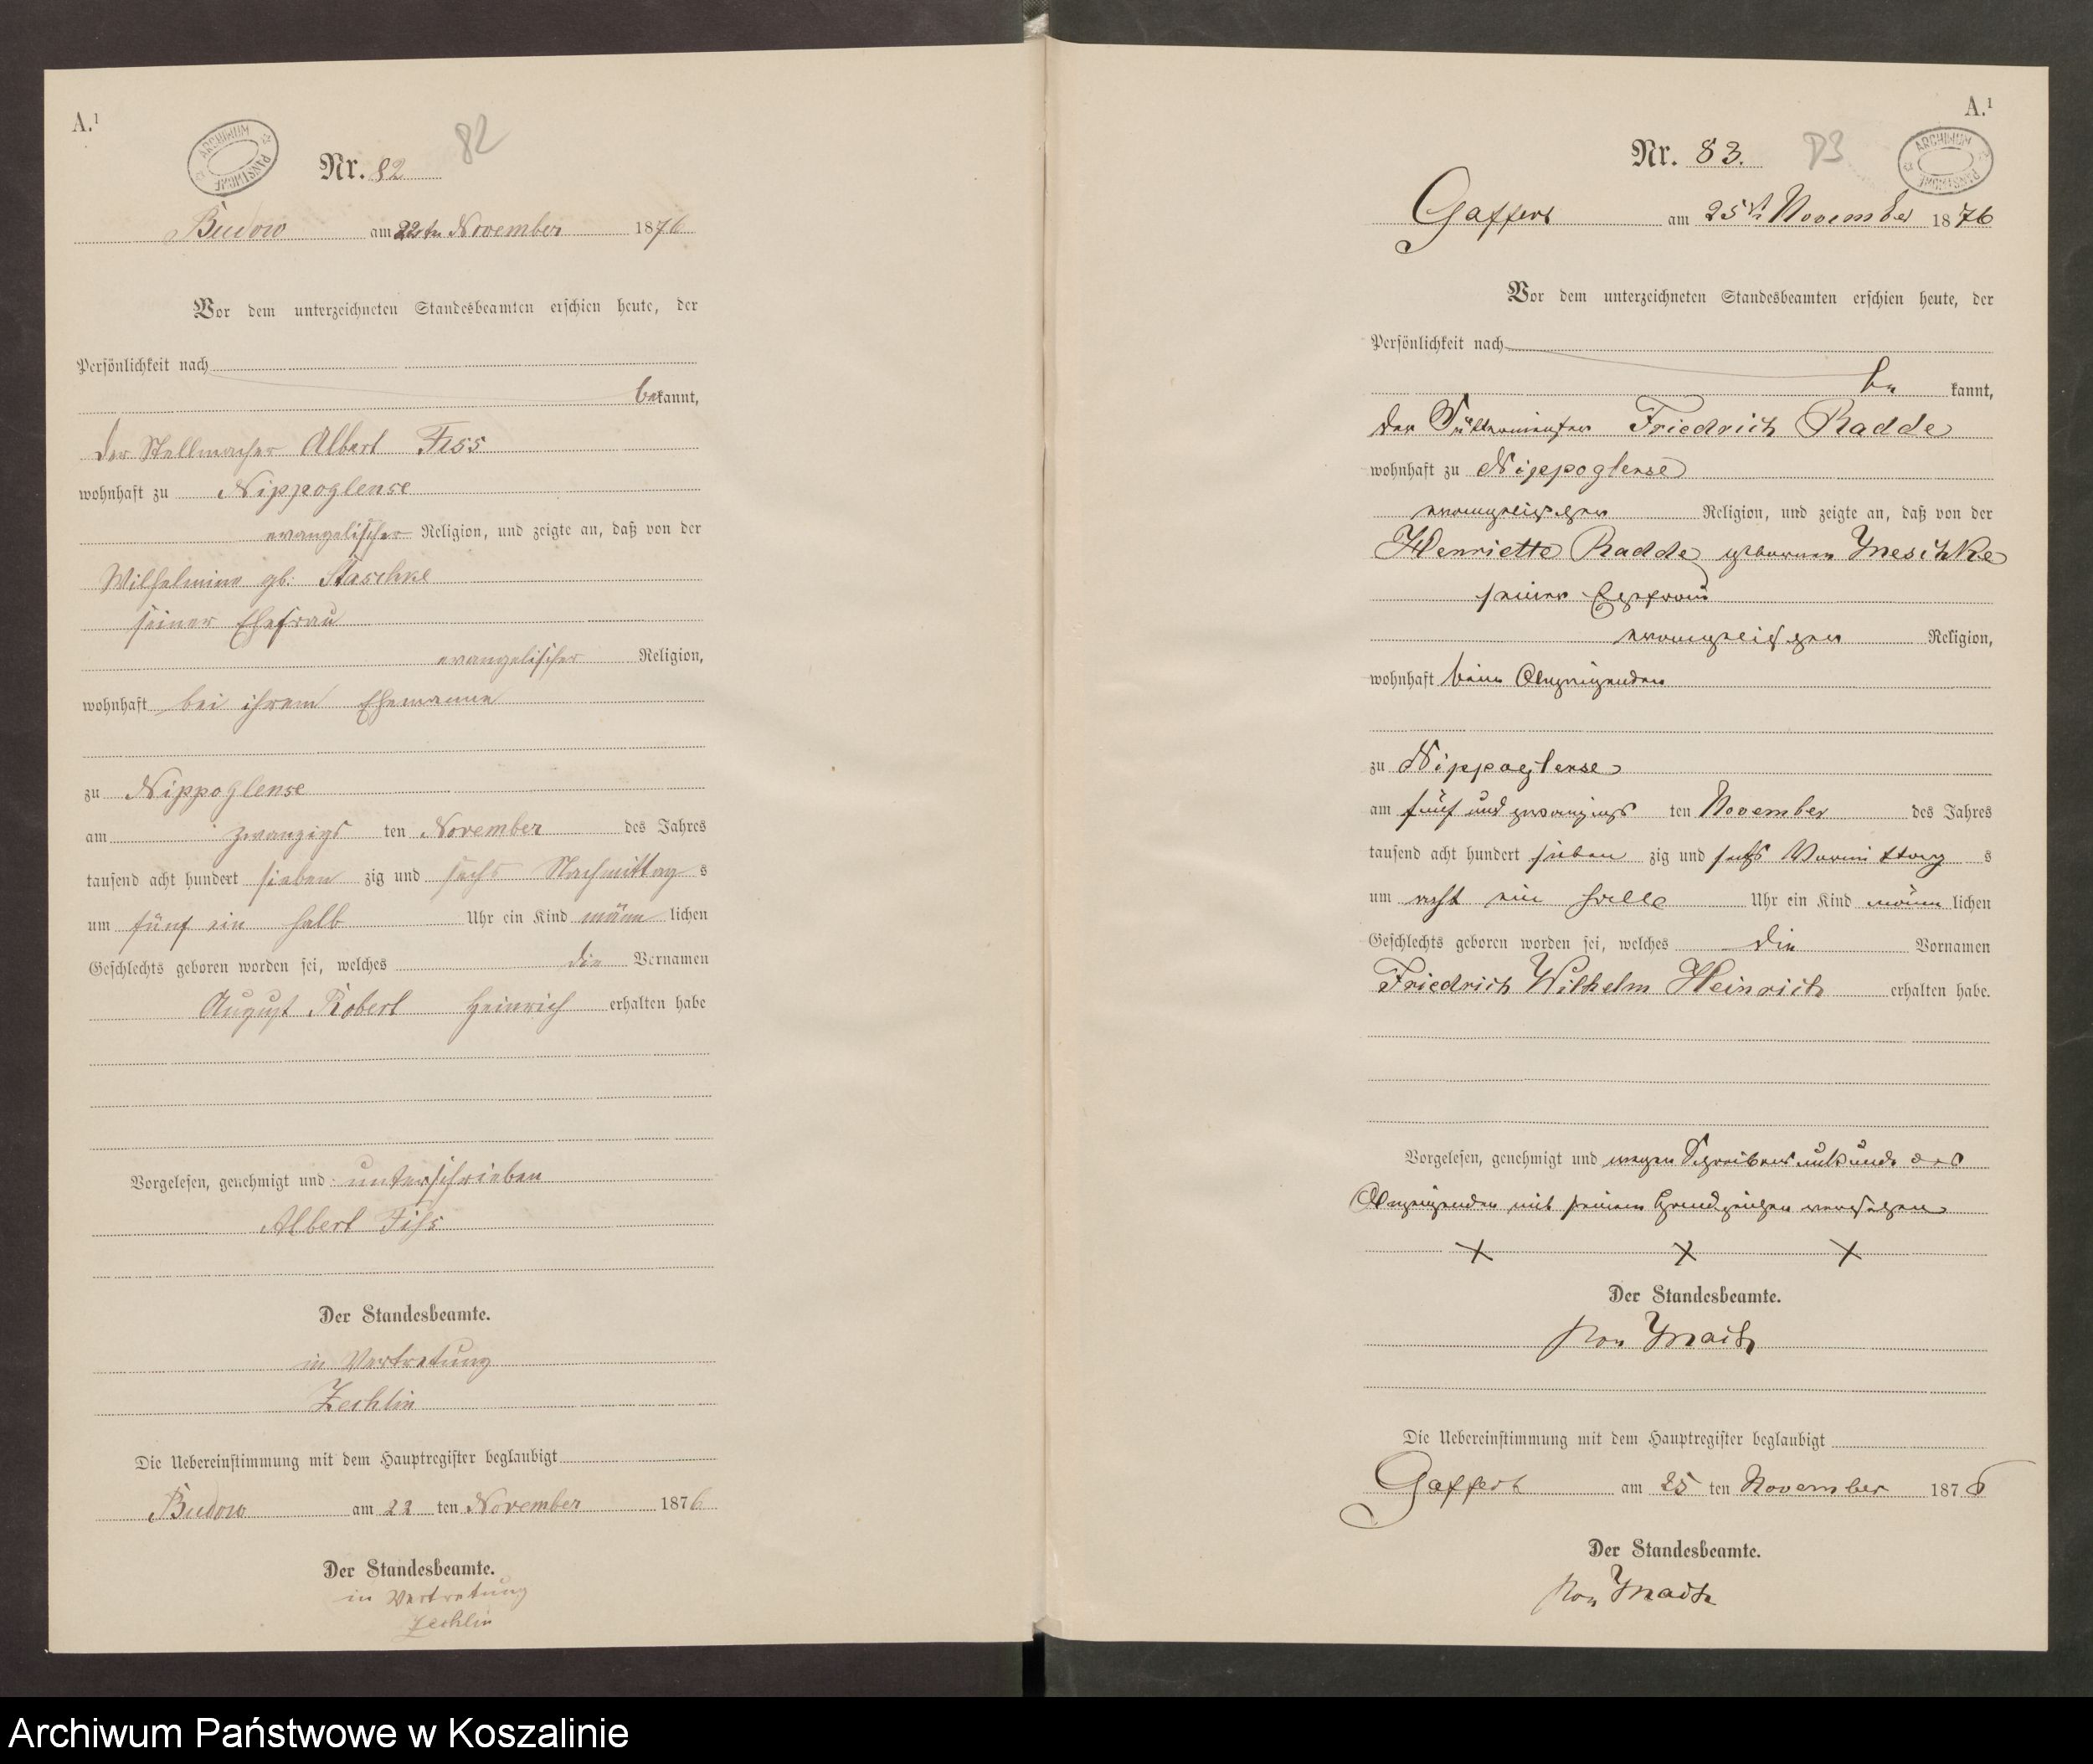 A.¹
ARCHIWUM PAŃSTWOWE
82
Nr. 82
Budow am 22ten November 1876
Vor dem unterzeichneten Standesbeamten erschien heute, der
Persönlichkeit nach
bekannt,
der Stellmacher Albert Fiss
wohnhaft zu Nippoglense
evangelischer Religion, und zeigte an, daß von der
Wilhelmine gb. Staschke
seiner Ehefrau
evangelischer Religion,
wohnhaft bei ihrem Ehemanne
zu Nippoglense
am zwanzigs ten November des Jahres
tausend acht hundert sieben zig und sechs Nachmittag s
um fünf ein halb Uhr ein Kind männ lichen
Geschlechts geboren worden sei, welches die Vornamen
August Robert Heinrich erhalten habe
Vorgelesen, genehmigt und unterschrieben
Albert Fiss
Der Standesbeamte.
in Vertretung
Zechlin
Die Uebereinstimmung mit dem Hauptregister beglaubigt
Budow am 22 ten November 1876
Der Standesbeamte.
in Vertretung
Zechlin
A.¹
ARCHIWUM PAŃSTWOWE
83
Nr. 83.
Gaffert am 25ten November 1876
Vor dem unterzeichneten Standesbeamten erschien heute, der
Persönlichkeit nach
be kannt,
der Friedrich Radde
wohnhaft zu Nippoglense
evangelischer Religion, und zeigte an, daß von der
Henriette Radde geborenen Meschke
seiner Ehefrau
evangelischer Religion,
wohnhaft beim Anzeigenden
zu Nippoglense
am fünf und zwanzigs ten November des Jahres
tausend acht hundert sieben zig und sechs Vormittag s
um acht ein halb Uhr ein Kind männ lichen
Geschlechts geboren worden sei, welches die Vornamen
Friedrich Wilhelm Heinrich erhalten habe.
Vorgelesen, genehmigt und wegen Schreibensunkunde des
Anzeigenden mit seinem Handzeichen versehen
X X X
Der Standesbeamte.
von
Die Uebereinstimmung mit dem Hauptregister beglaubigt
Gaffert am 25 ten November 1876
Der Standesbeamte.
von
Archiwum Państwowe w Koszalinie